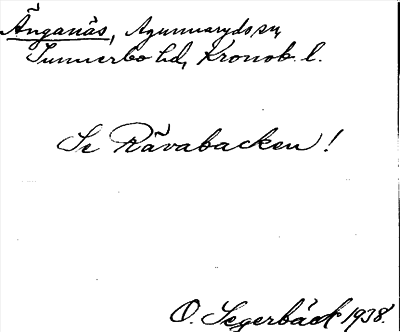 Änganäs, Agunnaryds sn,
Sunnerbo hd, Kronob. l.
Se Rävabacken!
O. Segerbäck 1938.